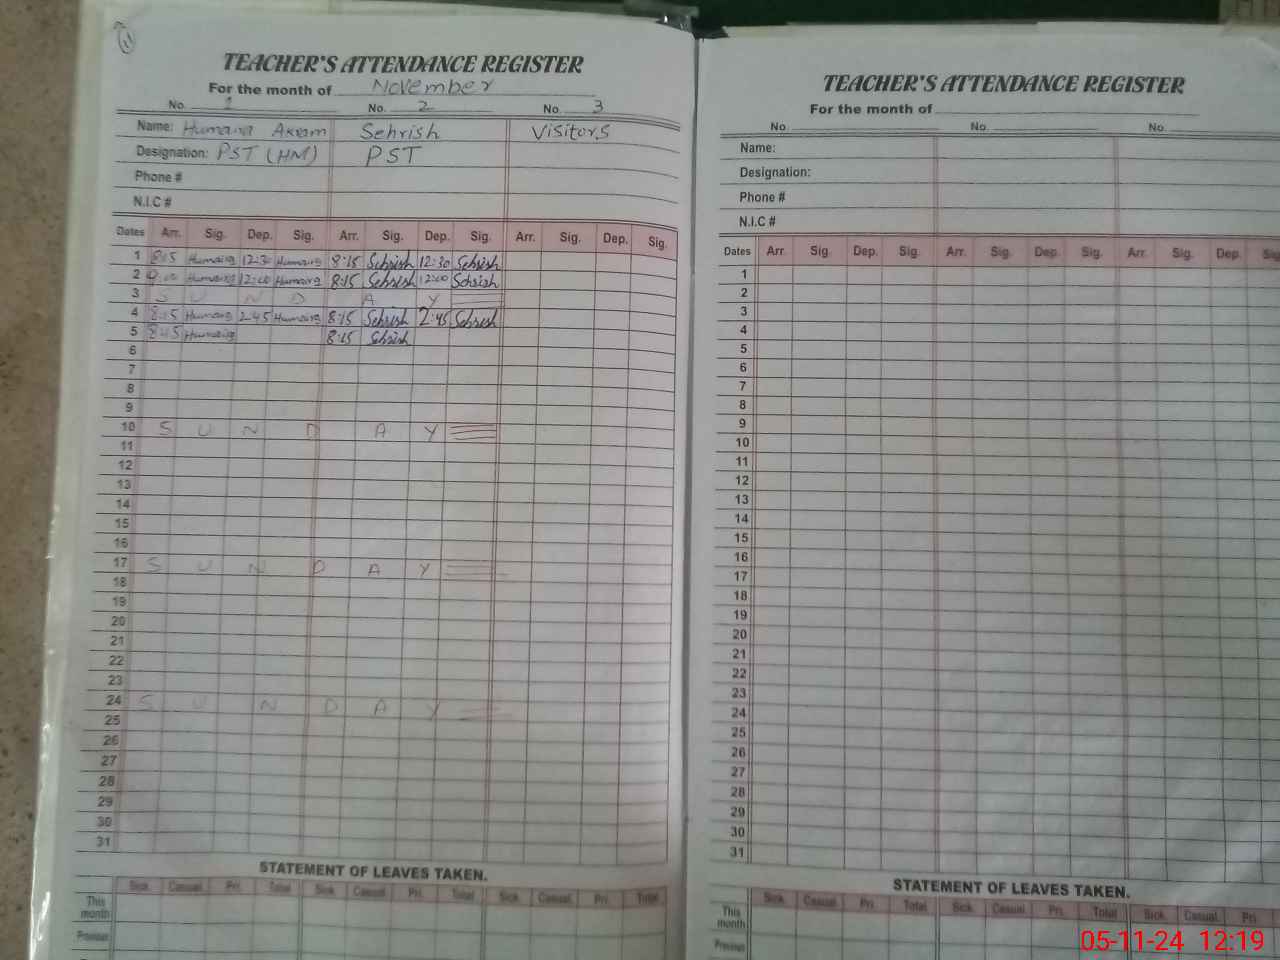 11
TEACHER'S ATTENDANCE REGISTER
For the month of November
No. 1 No. 2 No. 3
Name: Humaira Akram Sehrish Visitors
Designation: PST (HM) PST
Phone #
N.I.C #
Dates Arr. Sig. Dep. Sig. Arr. Sig. Dep. Sig. Arr. Sig. Dep. Sig.
1 8:15 Humaira 12:30 Humaira 8:15 Sehrish 12:30 Sehrish
2 Humaira 12:00 Humaira 8:15 Sehrish 12:00 Sehrish
3 S U N D A Y
4 8:15 Humaira 2:45 Humaira 8:15 Sehrish 2:45 Sehrish
5 8:15 Humaira 8:15 Sehrish
6
7
8
9
10 S U N D A Y
11
12
13
14
15
16
17 S U N D A Y
18
19
20
21
22
23
24 S U N D A Y
25
26
27
28
29
30
31
STATEMENT OF LEAVES TAKEN.
Sick. Casual. Pri. Total Sick. Casual. Pri. Total Sick. Casual. Pri. Total
This month
Previous
TEACHER'S ATTENDANCE REGISTER
For the month of
No. No. No.
Name:
Designation:
Phone #
N.I.C #
Dates Arr. Sig. Dep. Sig. Arr. Sig. Dep. Sig. Arr. Sig. Dep. Sig
1
2
3
4
5
6
7
8
9
10
11
12
13
14
15
16
17
18
19
20
21
22
23
24
25
26
27
28
29
30
31
STATEMENT OF LEAVES TAKEN.
Sick. Casual. Pri. Total Sick. Casual. Pri. Total Sick. Casual. Pri.
This month
Previous
05-11-24 12:19